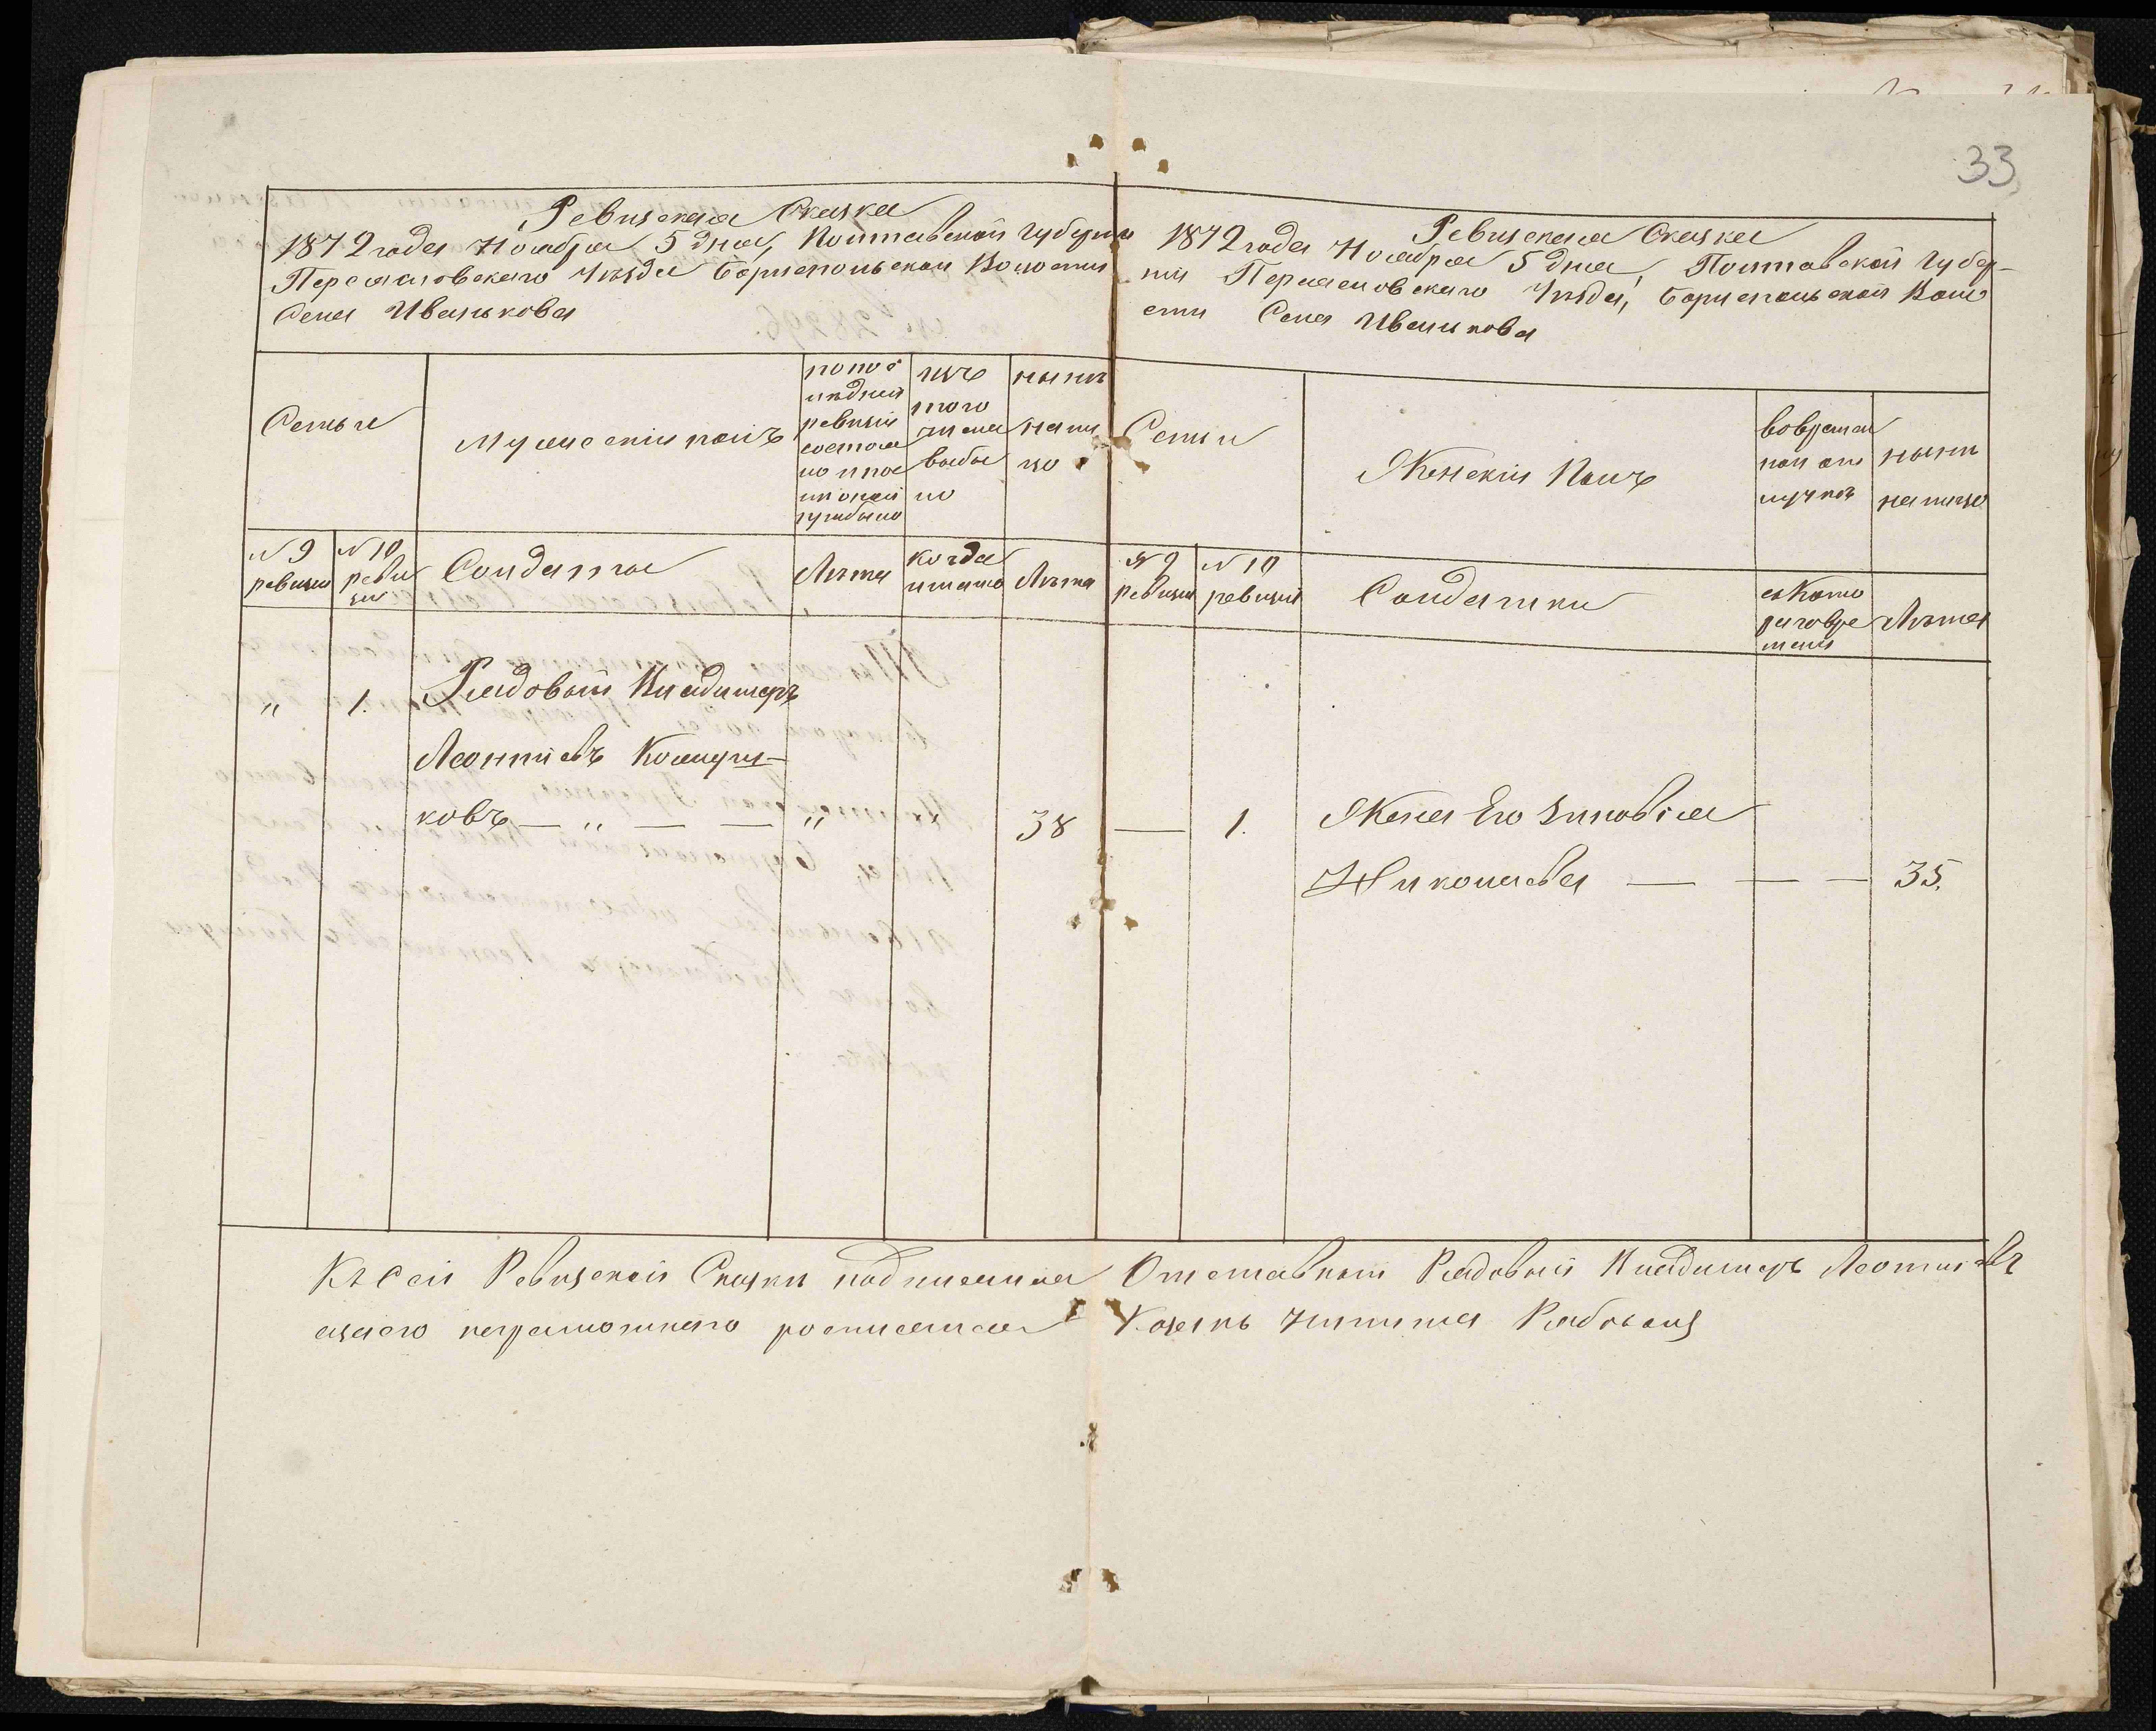 33
Ревизская Сказка
1872 года Ноября 5 дня, Полтавской Губерніи
Переяславского Уѣзда Бориспольской Волости
Села Иванькова
Ревизская Сказка
1872 года Ноября 5 дня, Полтавской Губер-
ніи Переясловского Уѣзда, Бориспольской Воло
сти Села Иванькова
Семьи
Мужескій полъ
по пос
лѣдней
ревизіи
состоя
ло и пос
лѣ оной
прибыло
изъ
того
числа
выбы
ло
нынѣ
на ли
цо
Семьи
Женскій Полъ
вовремен
ной от
лучкѣ
нынѣ
на лицо
№ 9
ревизіи
№ 10
реви
зіи
Солдаты
Лѣта
когда
имянно
Лѣта
№ 9
ревизіи
№ 10
ревизіи
Солдатки
съ кото
раго вре
мени
Лѣта
" 1. Рядовый Владимеръ
Леонтіевъ
ковъ — " — — " " 38
— 1. Жена Его Зиновія
Николаева — — — 35.
Къ сей Ревизской Сказки подписался Отставной Рядовый Владимеръ Леонтіевъ
азаего неграмотнаго росписался Козакъ Никита